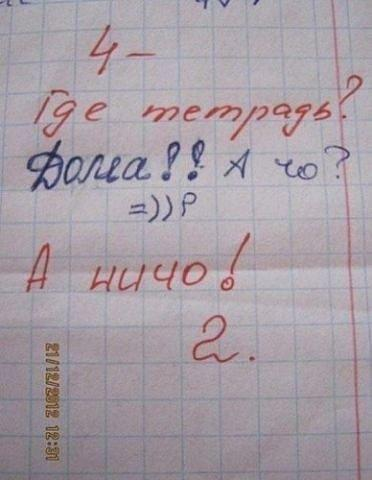 4-
Где тетрадь?
Дома!! А чо?
=))P
А ничо!
2.
21/12/2012 12:31